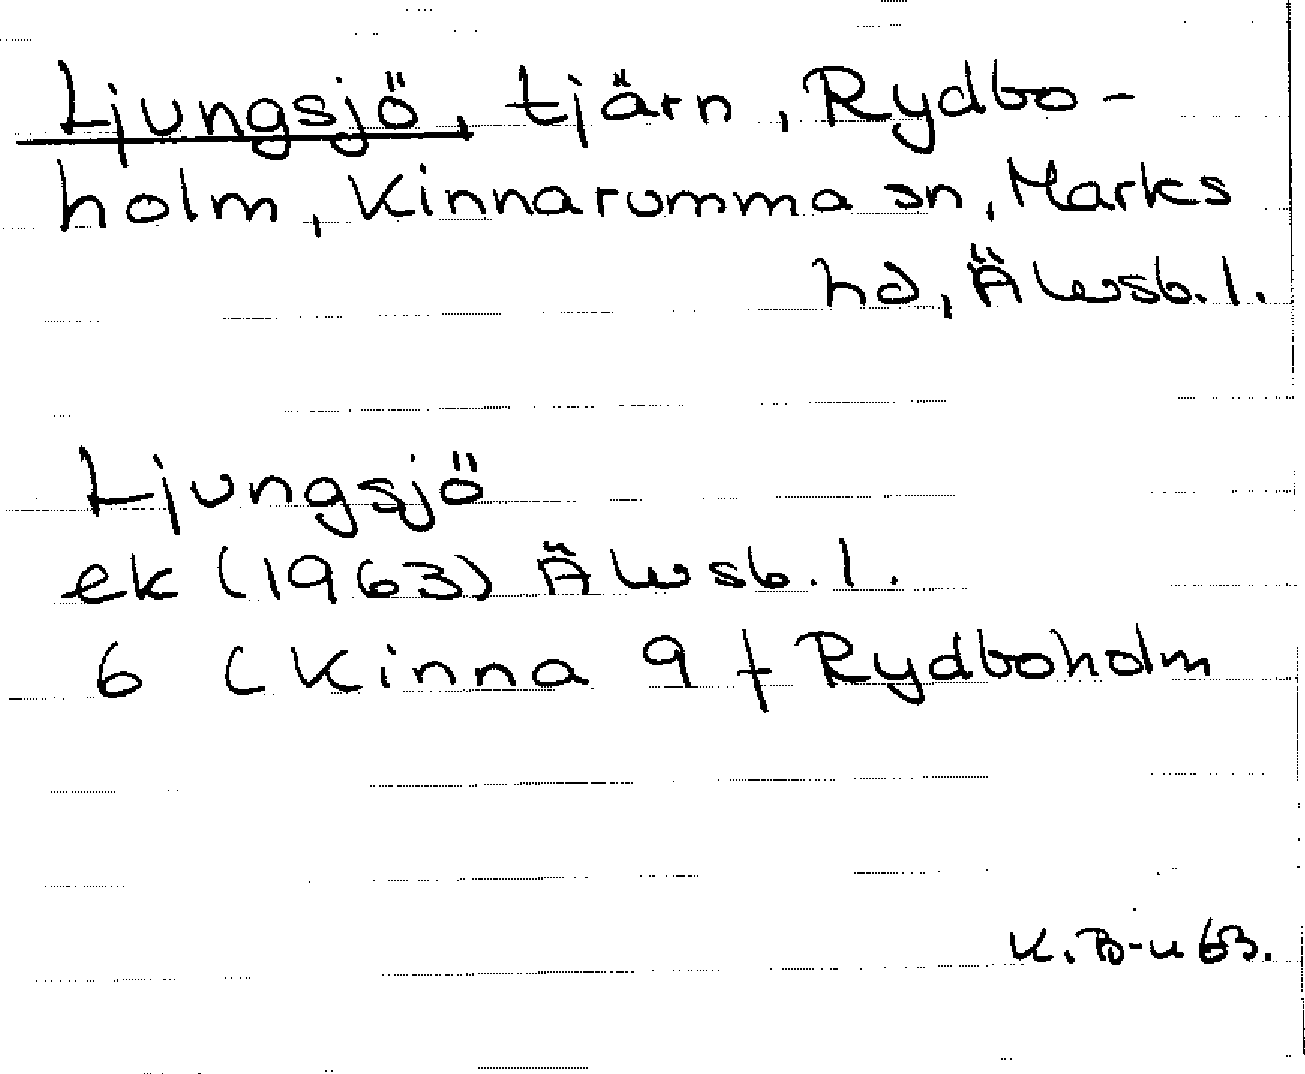 Ljungsjö, tjärn, Rydbo-
holm, Kinnarumma sn, Marks
hd, Älvsb.l.
Ljungsjö
ek (1963) Älvsb.l.
6 (Kinna 9 f Rydboholm
K.B-u 63.